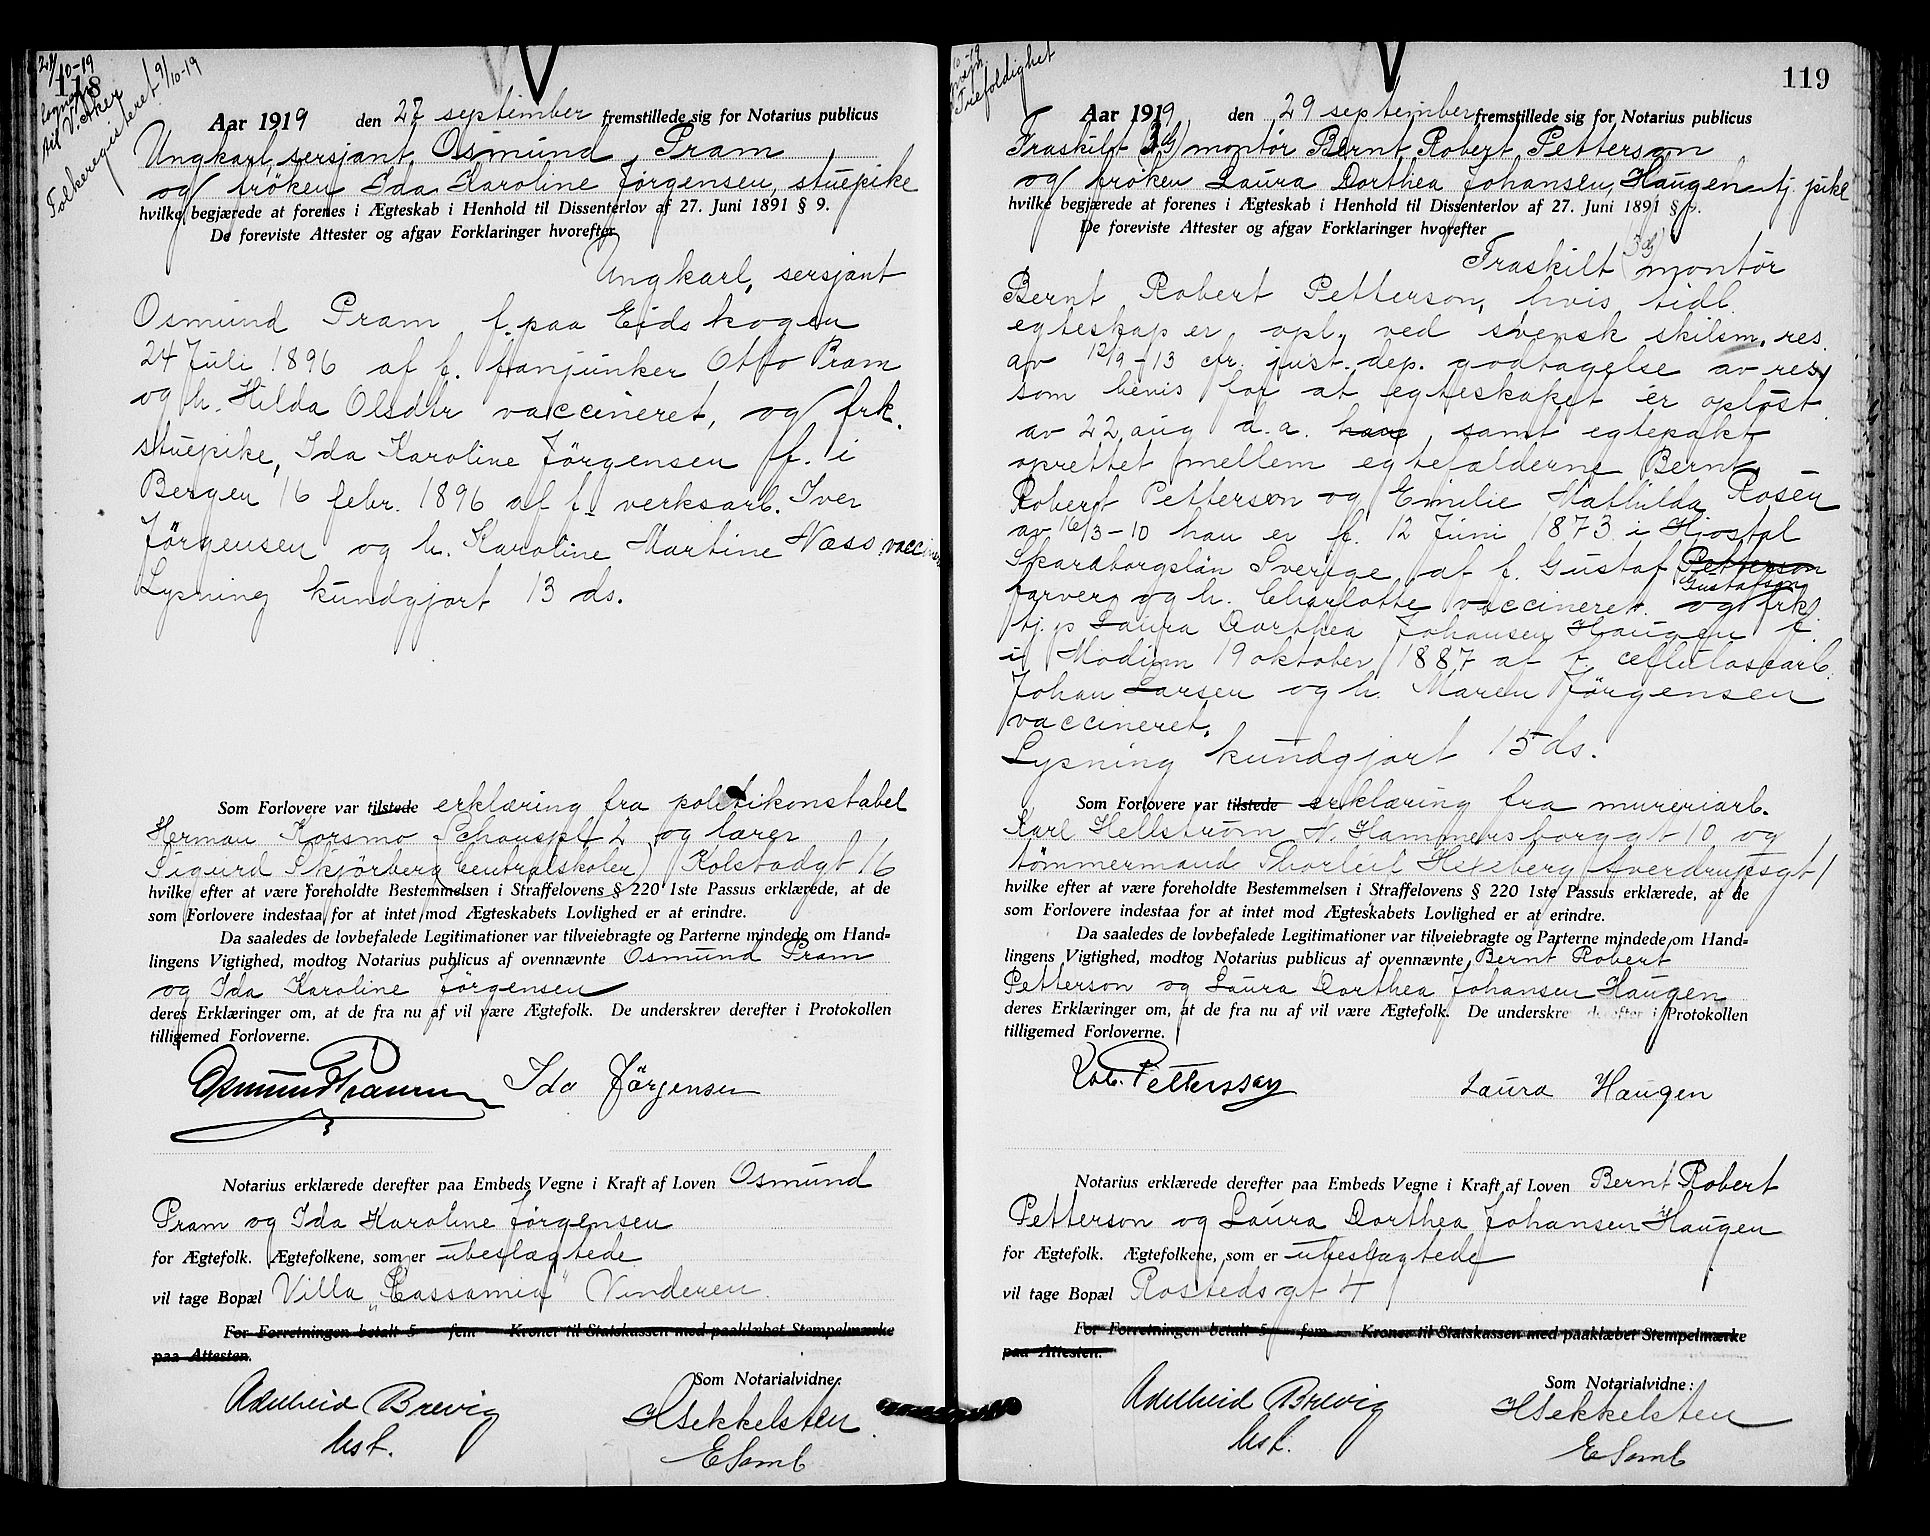 21/10-19
118
sogn
til V. Aker
Folkeregisteret 9/10-19
Aar 1919 den 27 september fremstillede sig for Notarius publicus
Ungkarl, sersjant Osmund Pram
og frøken Ida Karoline Jörgensen, stuepike
hvilke begjærede at forenes i Ægteskab i Henhold til Dissenterlov af 27. Juni 1891 § 9.
De foreviste Attester og afgav Forklaringer hvorefter
Ungkarl, sersjant
Osmund Pram f. paa Eidskogen
24 Juli 1896 af f. fanjunker Otto Pram
og h. Hilda Olsdtr vaccineret, og frk.
stuepike, Ida Karoline Jörgensen f. i
Bergen 16 febr. 1896 af f. verksarb. Iver
Jörgensen og h. Karoline Martine Næss vaccineret
Lysning kundgjort 13 ds.
Som Forlovere var tilstede erklæring fra politikonstabel
Herman Korsmo Schouspl 2 og lærer
Sigurd Skjörberg (Centralskolen) Kolstadgt 16
hvilke efter at være foreholdte Bestemmelsen i Straffelovens § 220 1ste Passus erklærede, at de
som Forlovere indestaa for at intet mod Ægteskabets Lovlighed er at erindre.
Da saaledes de lovbefalede Legitimationer var tilveiebragte og Parterne mindede om Hand-
lingens Vigtighed, modtog Notarius publicus af ovennævnte Osmund Pram
og Ida Karoline Jörgensen
deres Erklæringer om, at de fra nu af vil være Ægtefolk. De underskrev derefter i Protokollen
tilligemed Forloverne.
Osmund Pram Ida Jörgensen
Notarius erklærede derefter paa Embeds Vegne i Kraft af Loven Osmund
Pram og Ida Karoline Jörgensen
for Ægtefolk. Ægtefolkene, som er ubeslægtede
vil tage Bopæl Villa "Cassamia" Vinderen.
For Forretningen betalt 5 fem Kroner til Statskassen med paaklæbet Stempelmærke
paa Attesten.
Som Notarialvidne:
Adelheid Brevig HSekkelsten
ust. E Somb
10-19
Trefoldighet
119
Aar 1919, den 29 september fremstillede sig for Notarius publicus
Fraskilt (3g) montör Bernt Robert Petterson
og frøken Laura Dorthea Johansen Haugen tj. pike
hvilke begjærede at forenes i Ægteskab i Henhold til Dissenterlov af 27. Juni 1891 § 9.
De foreviste Attester og afgav Forklaringer hvorefter
Fraskilt (3g) montör
Bernt Robert Petterson, hvis tidl.
egteskap er opl. ved svensk skilsm. res.
av 12/9-13 cfr. just. dep. godtagelse av res.
som bevis for at egteskapet er oplöst
av 22 aug d.a. have, samt egtepakt
oprettet mellem egtefælderne Bernt
Robert Petterson og Emilie Mathilda Rosén
av 16/3-10 han er f. 12 Juni 1873 i Hjostal
Skaraborgslän Sverige af f. Gustaf Petterson
Gustafson
farver og h. Charlotte vaccineret. og frk.
tj.p Laura Dorthea Johansen Haugen f.
i Modum 19 oktober 1887 af f. celluloscarb.
Johan Larsen og h. Maren Jörgensen
vaccineret.
Lysning kundgjort 15 ds.
Som Forlovere var tilstede erklæring fra mureriarb.
Karl Hellström N. Hammersborggt 10 og
tömmermand Thorleif Hekeberg Sverdrupsgt 1
hvilke efter at være foreholdte Bestemmelsen i Straffelovens § 220 1ste Passus erklærede, at de
som Forlovere indestaa for at intet mod Ægteskabets Lovlighed er at erindre.
Da saaledes de lovbefalede Legitimationer var tilveiebragte og Parterne mindede om Hand-
lingens Vigtighed, modtog Notarius publicus af ovennævnte Bernt Robert
Petterson og Laura Dorthea Johansen Haugen
deres Erklæringer om, at de fra nu af vil være Ægtefolk. De underskrev derefter i Protokollen
tilligemed Forloverne.
Rob. Petterssøn Laura Haugen
Notarius erklærede derefter paa Embeds Vegne i Kraft af Loven Bernt Robert
Petterson og Laura Dorthea Johansen Haugen
for Ægtefolk. Ægtefolkene, som er ubeslægtede
vil tage Bopæl Rostedsgt 4
For Forretningen betalt 5 fem Kroner til Statskassen med paaklæbet Stempelmærke
paa Attesten.
Som Notarialvidne:
Adelheid Brevig HSekkelsten
ust. E Somb